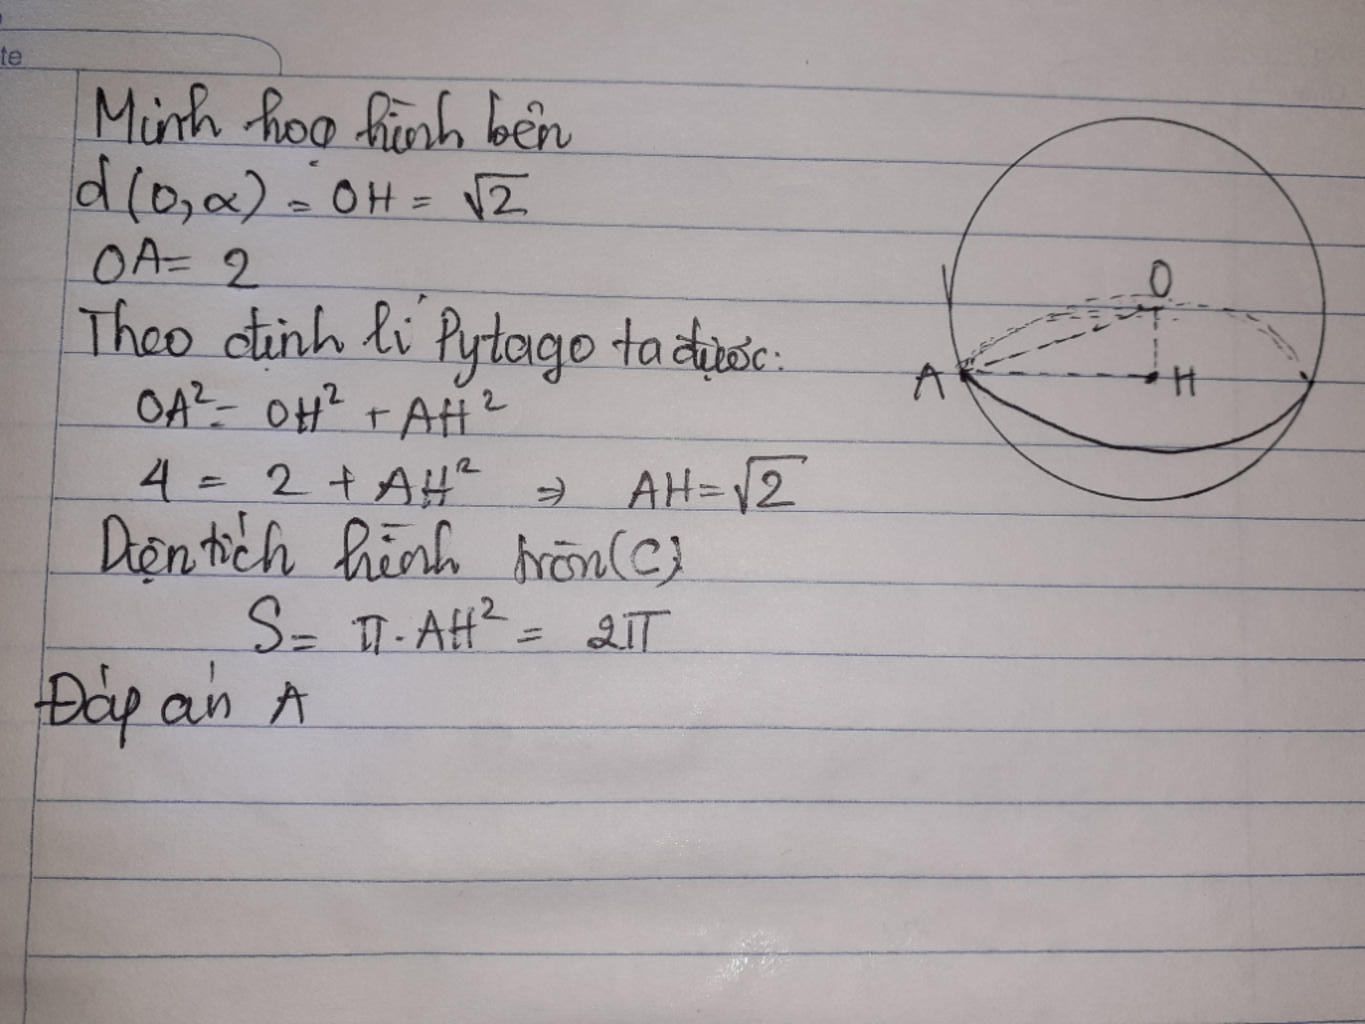 te
Minh hoạ hình bên
d(O,α) = OH = √2
OA = 2
Theo định lí Pytago ta được:
OA² = OH² + AH²
4 = 2 + AH² ⇒ AH = √2
Diện tích hình tròn (C)
S = π . AH² = 2π
Đáp án A
O
A
H